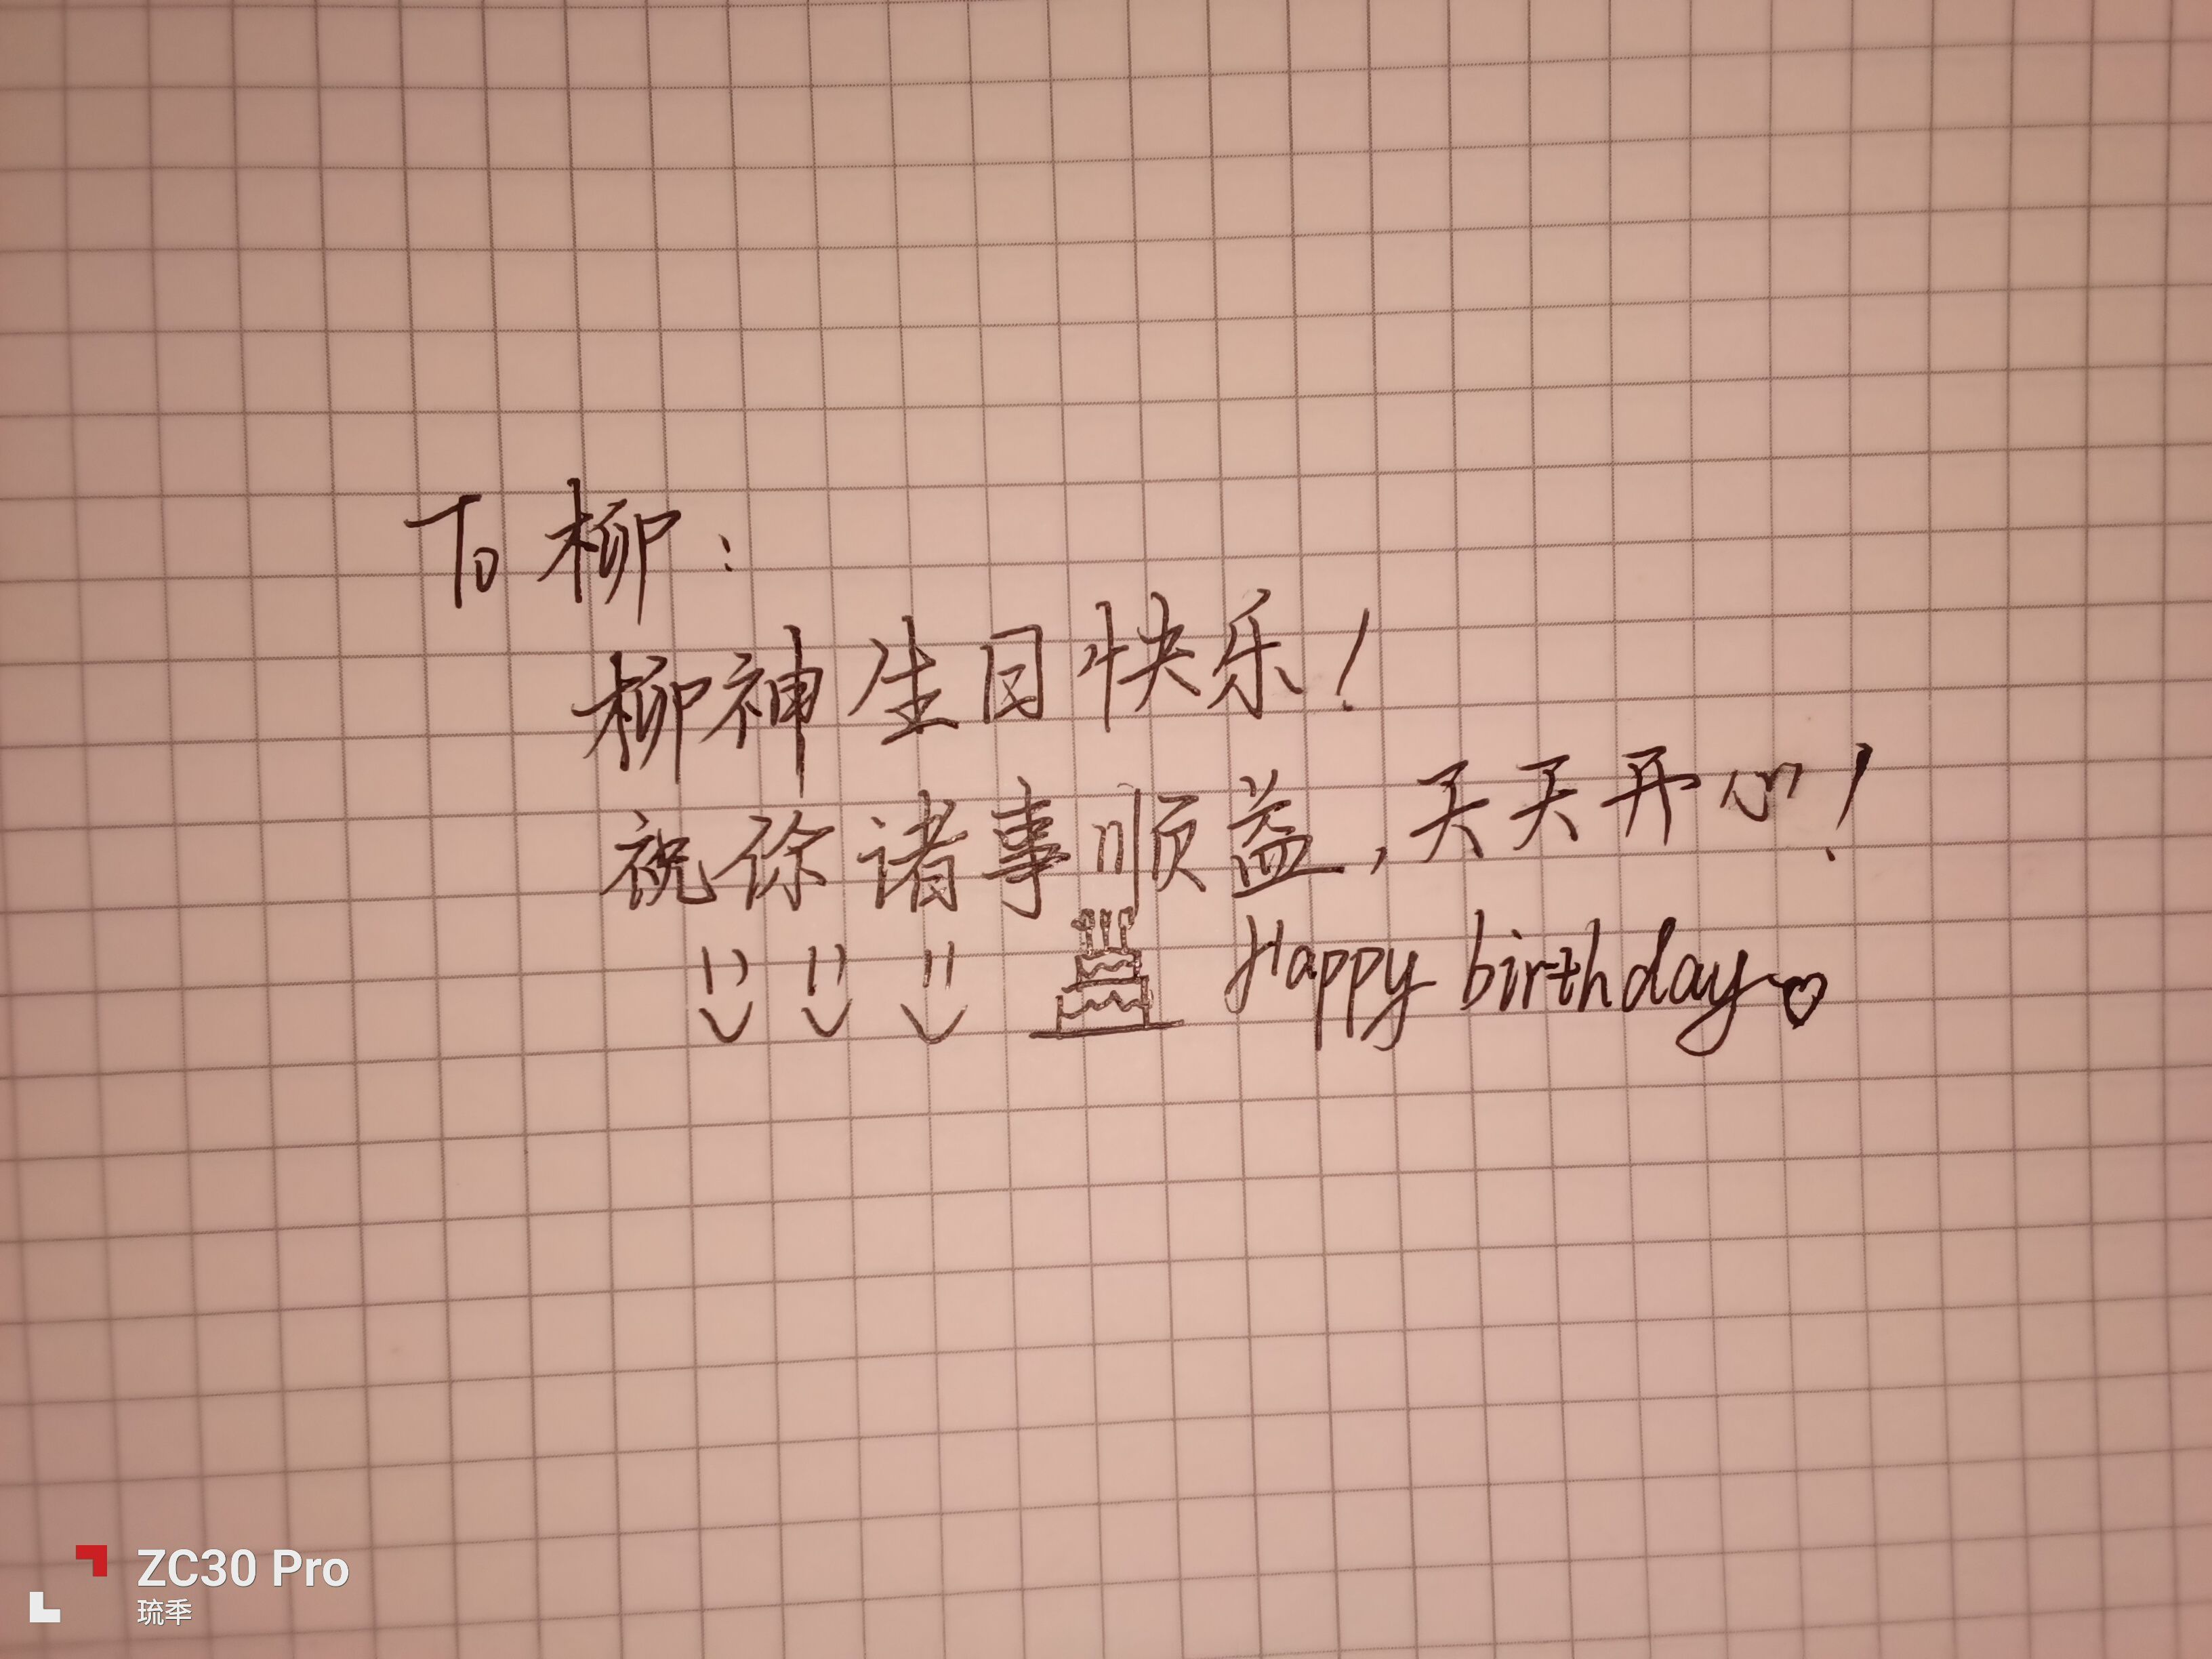 To 柳：
柳神生日快乐！
祝你诸事顺益，天天开心！
Happy birthday
ZC30 Pro
琉季